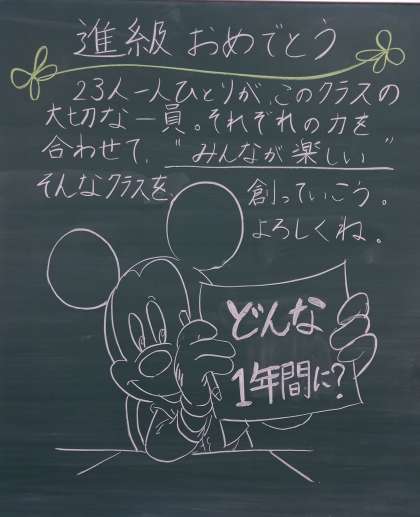 進級おめでとう
23人一人ひとりが、このクラスの
大切な一員。それぞれの力を
合わせて、"みんなが楽しい"
そんなクラスを、創っていこう。
よろしくね。
どんな
1年間に?